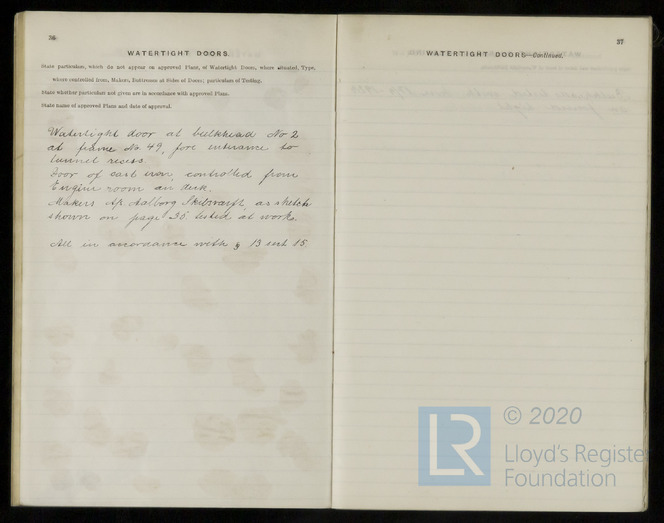 36
WATERTIGHT DOORS.
State particulars, which do not appear on approved Plans, of Watertight Doors, where situated, Type,
where controlled from, Makers, Buttresses at Sides of Doors, particulars of Testing.
State whether particulars not given are in accordance with approved Plans.
State name of approved Plans and date of approval.
Watertight door at bulkhead No 2
at frame No. 49, fore entrance to
tunnel recess.
Door of cast iron, controlled from
Engine room an deck.
Makers A/S Aalborg Skibsværft, as sketch
shown on page 35 tested at works.
All in accordance with § 13 sect 15.
37
WATERTIGHT DOORS—Continued.
LR
© 2020
Lloyd's Register
Foundation